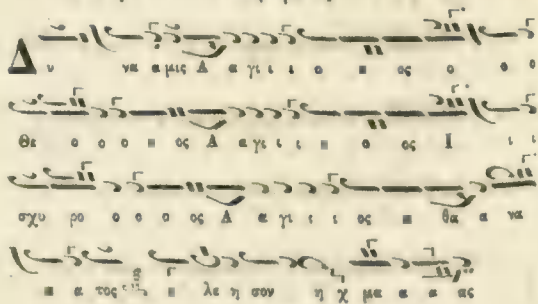 Δ υ να α μις Α α γι ι ι ο π ος ο ο ο
Θε ο ο ο π ος Α α γι ι ι π ο ος Ι ι ι
σχυ ρο ο ο ο ος Α α γι ι ι ος π θα α να
π α τος π λε η σον η χ μα α α ας